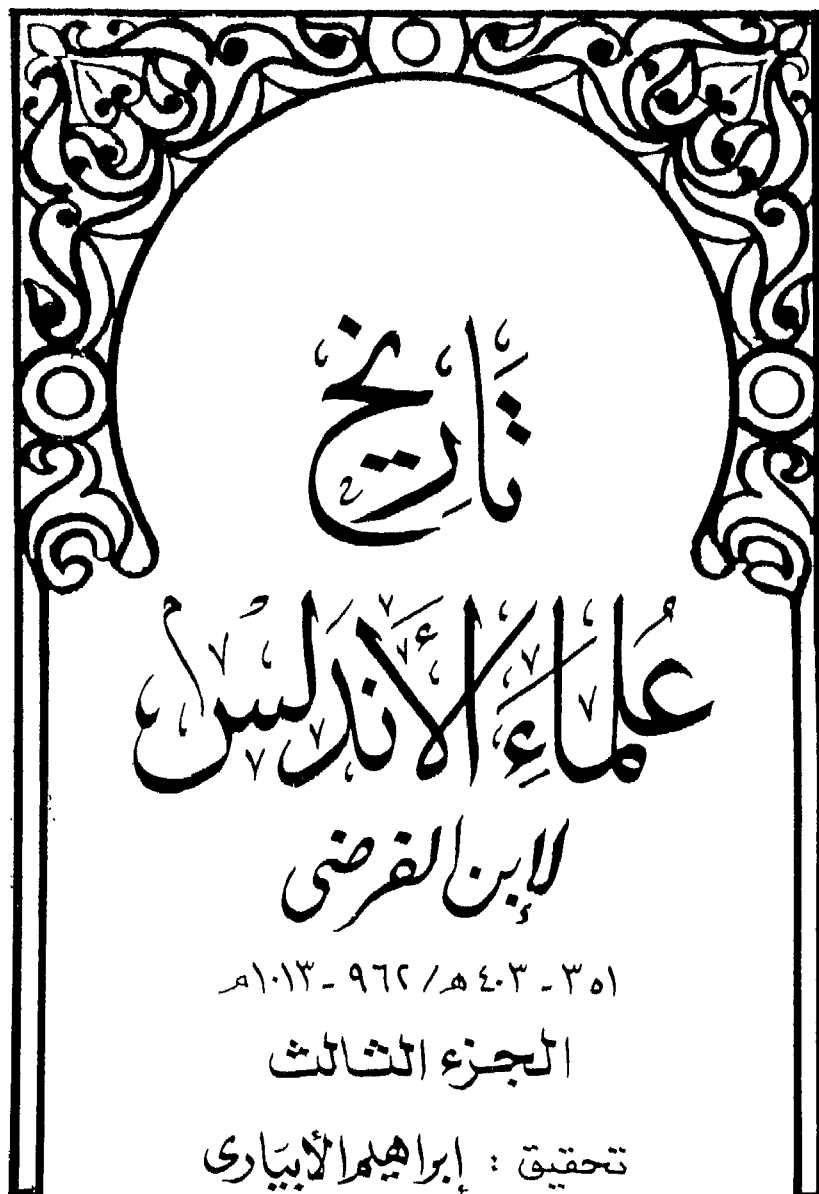 تَارِيخ
عُلَمَاءِ الأَنْدَلُس
لإبن الفرضى
٣٥١ - ٤٠٣ هـ / ٩٦٢ - ١٠١٣م
الجزء الثالث
تحقيق : إبراهيم الأبيَارى